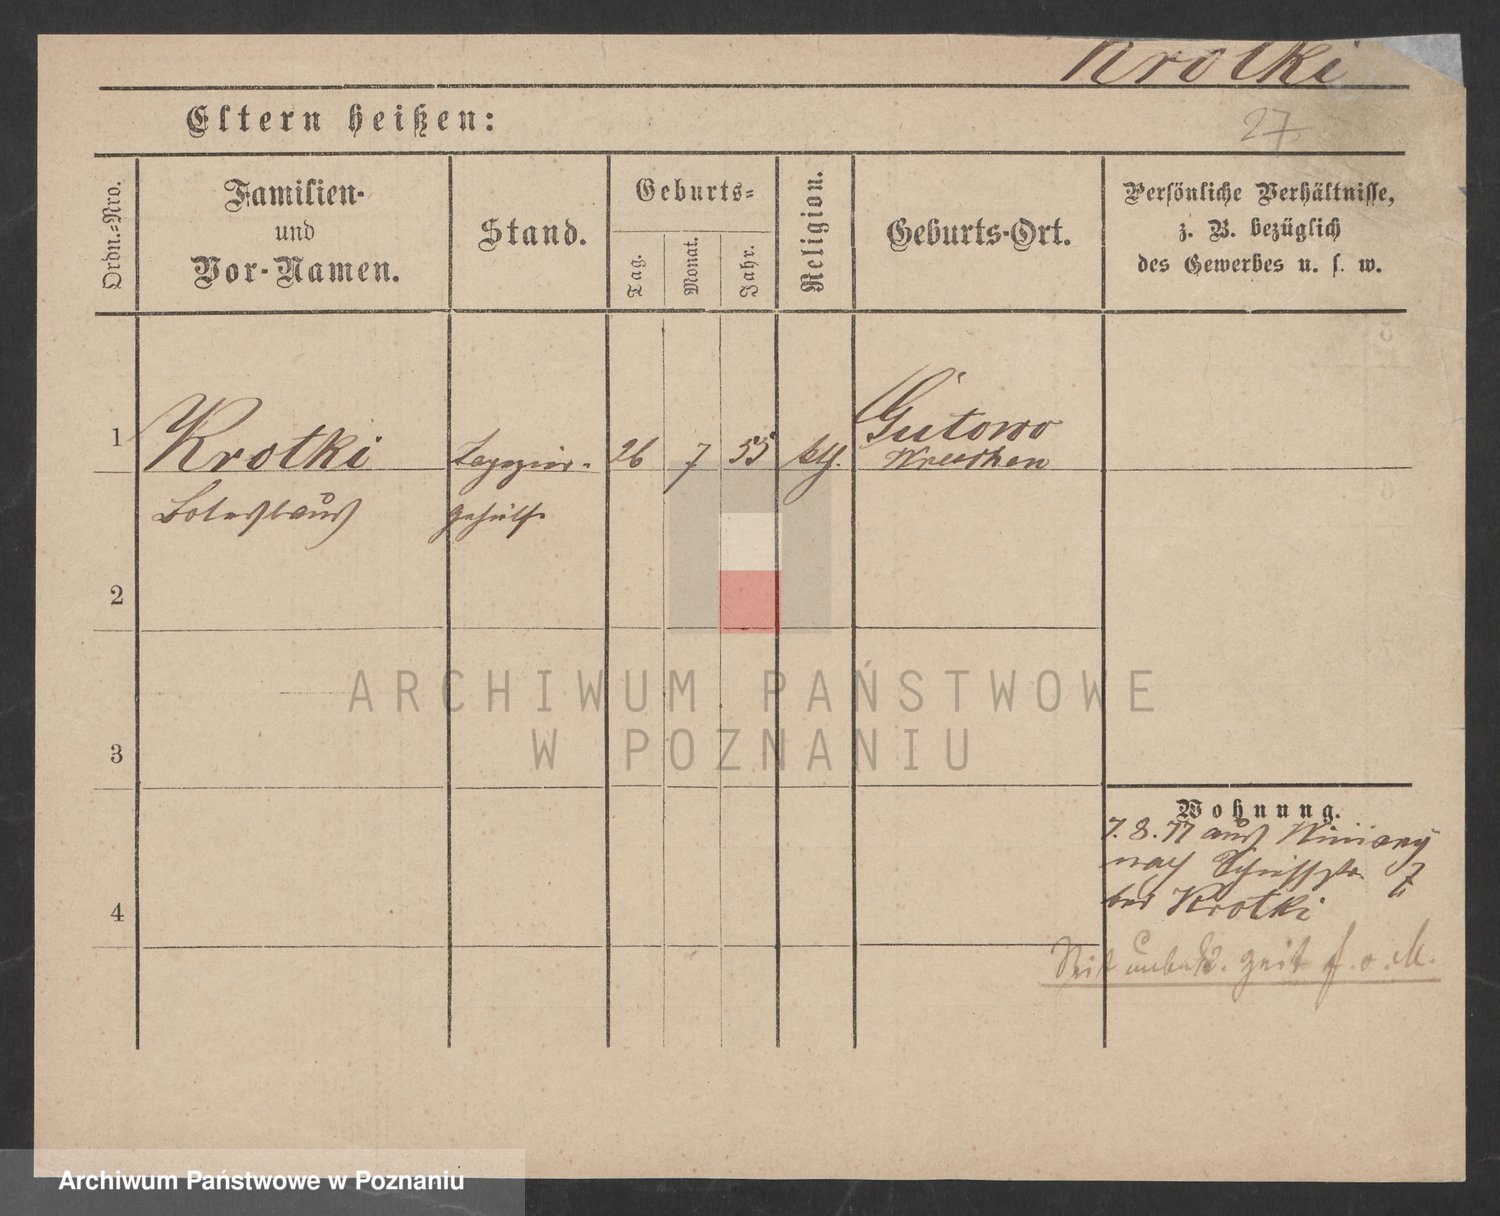 Krotki
27
Eltern heißen:
Ordn.-Nro.
Familien-
und
Vor-Namen.
Stand.
Geburts-
Tag.
Monat.
Jahr.
Religion.
Geburts-Ort.
Persönliche Verhältnisse,
z. B. bezüglich
des Gewerbes u. s. w.
1
Krotki
Boleslaus
Tapezier-
gehülfe
26
7
55
kth.
Gutowo
Wreschen
2
3
4
Wohnung.
7. 8. 77 aus Winiary
nach
bei Krotki
Seit unbek. Zeit f. o. M.
ARCHIWUM PAŃSTWOWE
W POZNANIU
Archiwum Państwowe w Poznaniu